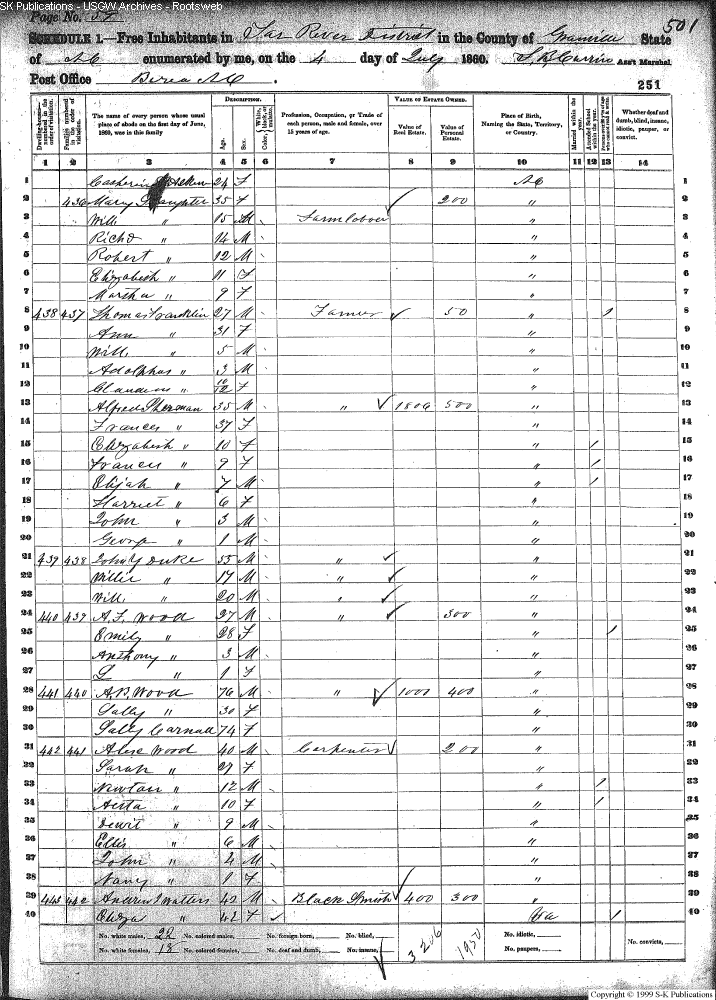 SK Publications - USGW Archives - Rootsweb
Page No. 501
SCHEDULE 1.—Free Inhabitants in Tar River District in the County of Granville State
of NC enumerated by me, on the 4 day of July 1860. Ass't Marshal
Post Office Berea NC. 251
Dwelling-houses numbered in the order of visitation. Families numbered in the order of visitation. The name of every person whose usual place of abode on the first day of June, 1860, was in this family DESCRIPTION. Age. Sex. Color, White, black, or mulatto. Profession, Occupation, or Trade of each person, male and female, over 15 years of age. VALUE OF ESTATE OWNED. Value of Real Estate. Value of Personal Estate. Place of Birth, Naming the State, Territory, or Country. Married within the year. Attended School within the year. Persons over 20 y'rs of age who cannot read & write. Whether deaf and dumb, blind, insane, idiotic, pauper, or convict.
1 2 3 4 5 6 7 8 9 10 11 12 13 14
1 24 F NC 1
2 436 Mary 35 F 200 " 2
3 Will " 15 M Farm labour " 3
4 Richd " 14 M " 4
5 Robert " 12 M " 5
6 Elizabeth " 11 F " 6
7 Martha " 9 F " 7
8 438 437 Thomas 27 M Farmer 50 " / 8
9 Ann " 31 F " 9
10 Will " 5 M " 10
11 Adolphus " 3 M " 11
12 10/12 F " 12
13 Alfred Sherman 35 M " 1806 500 " 13
14 Frances " 37 F " 14
15 Elizabeth " 10 F " / 15
16 Frances " 9 F " / 16
17 Elijah " 7 M " / 17
18 Harriet " 6 F " 18
19 John " 3 M " 19
20 George " 1 M " 20
21 439 438 John Y Duke 55 M " " 21
22 Willie " 17 M " " 22
23 Will " 20 M " " 23
24 440 439 A. F. Wood 27 M " 300 " 24
25 Emily " 28 F " / 25
26 Anthony " 3 M " 26
27 " 1 F " 27
28 441 440 A. P. Wood 76 M " 1000 400 " 28
29 Sally " 30 F " 29
30 Sally Carnall 74 F " 30
31 442 441 Wood 40 M Carpenter 200 " 31
32 Sarah " 27 F " 32
33 Newton " 12 M " / 33
34 " 10 F " / 34
35 Dewit " 9 M " 35
36 Ellis " 6 M " 36
37 John " 4 M " 37
38 Nancy " 1 F " 38
39 443 442 Andrew J Walters 42 M Black Smith 400 300 " 39
40 Eliza " 42 F Va / 40
No. white males, 22 No. colored males, No. foreign born, No. blind, 3206 1950 No. idiotic, No. convicts,
No. white females, 18 No. colored females, No. deaf and dumb, No. insane, No. paupers,
Copyright © 1999 S-K Publications